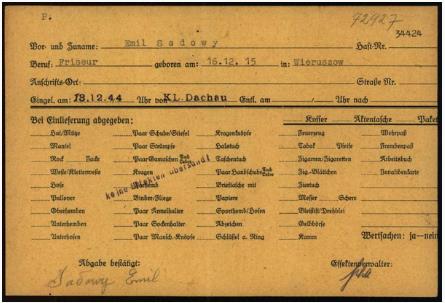 P. 92927
Vor- und Zuname: Emil Sadowy Haft-Nr. 34424
Beruf: Friseur geboren am: 16.12.15 in: Wieruszow
Anschrifts-Ort: Straße Nr.
Eingel. am: 18.12.44 Uhr von KL.Dachau Entl. am Uhr nach
Bei Einlieferung abgegeben: Koffer Aktentasche Paket
Hut/Mütze Paar Schuhe/Stiefel Kragenknöpfe Feuerzeug Wehrpaß
Mantel Paar Strümpfe Halstuch Tabak Pfeife Fremdenpaß
Rock Jacke Paar Gamaschen Tuch Leder Taschentuch Zigarren/Zigaretten Arbeitsbuch
Weste/Kletterweste Kragen Paar Handschuhe Tuch Leder Zig.-Blättchen Invalidenkarte
Hose Brieftasche mit Zivilrock
Pullover Binder/Fliege Papiere Messer Schere
Oberhemden Paar Ärmelhalter Sporthemd/Hosen Bleistift/Drehblei
Unterhemden Paar Sockenhalter Abzeichen Geldbörse
Unterhosen Paar Mansch.-Knöpfe Schlüssel a. Ring Kamm Wertsachen: ja—nein
keine Effekten übersandt!
Abgabe bestätigt: Effektenverwalter:
Sadowy Emil